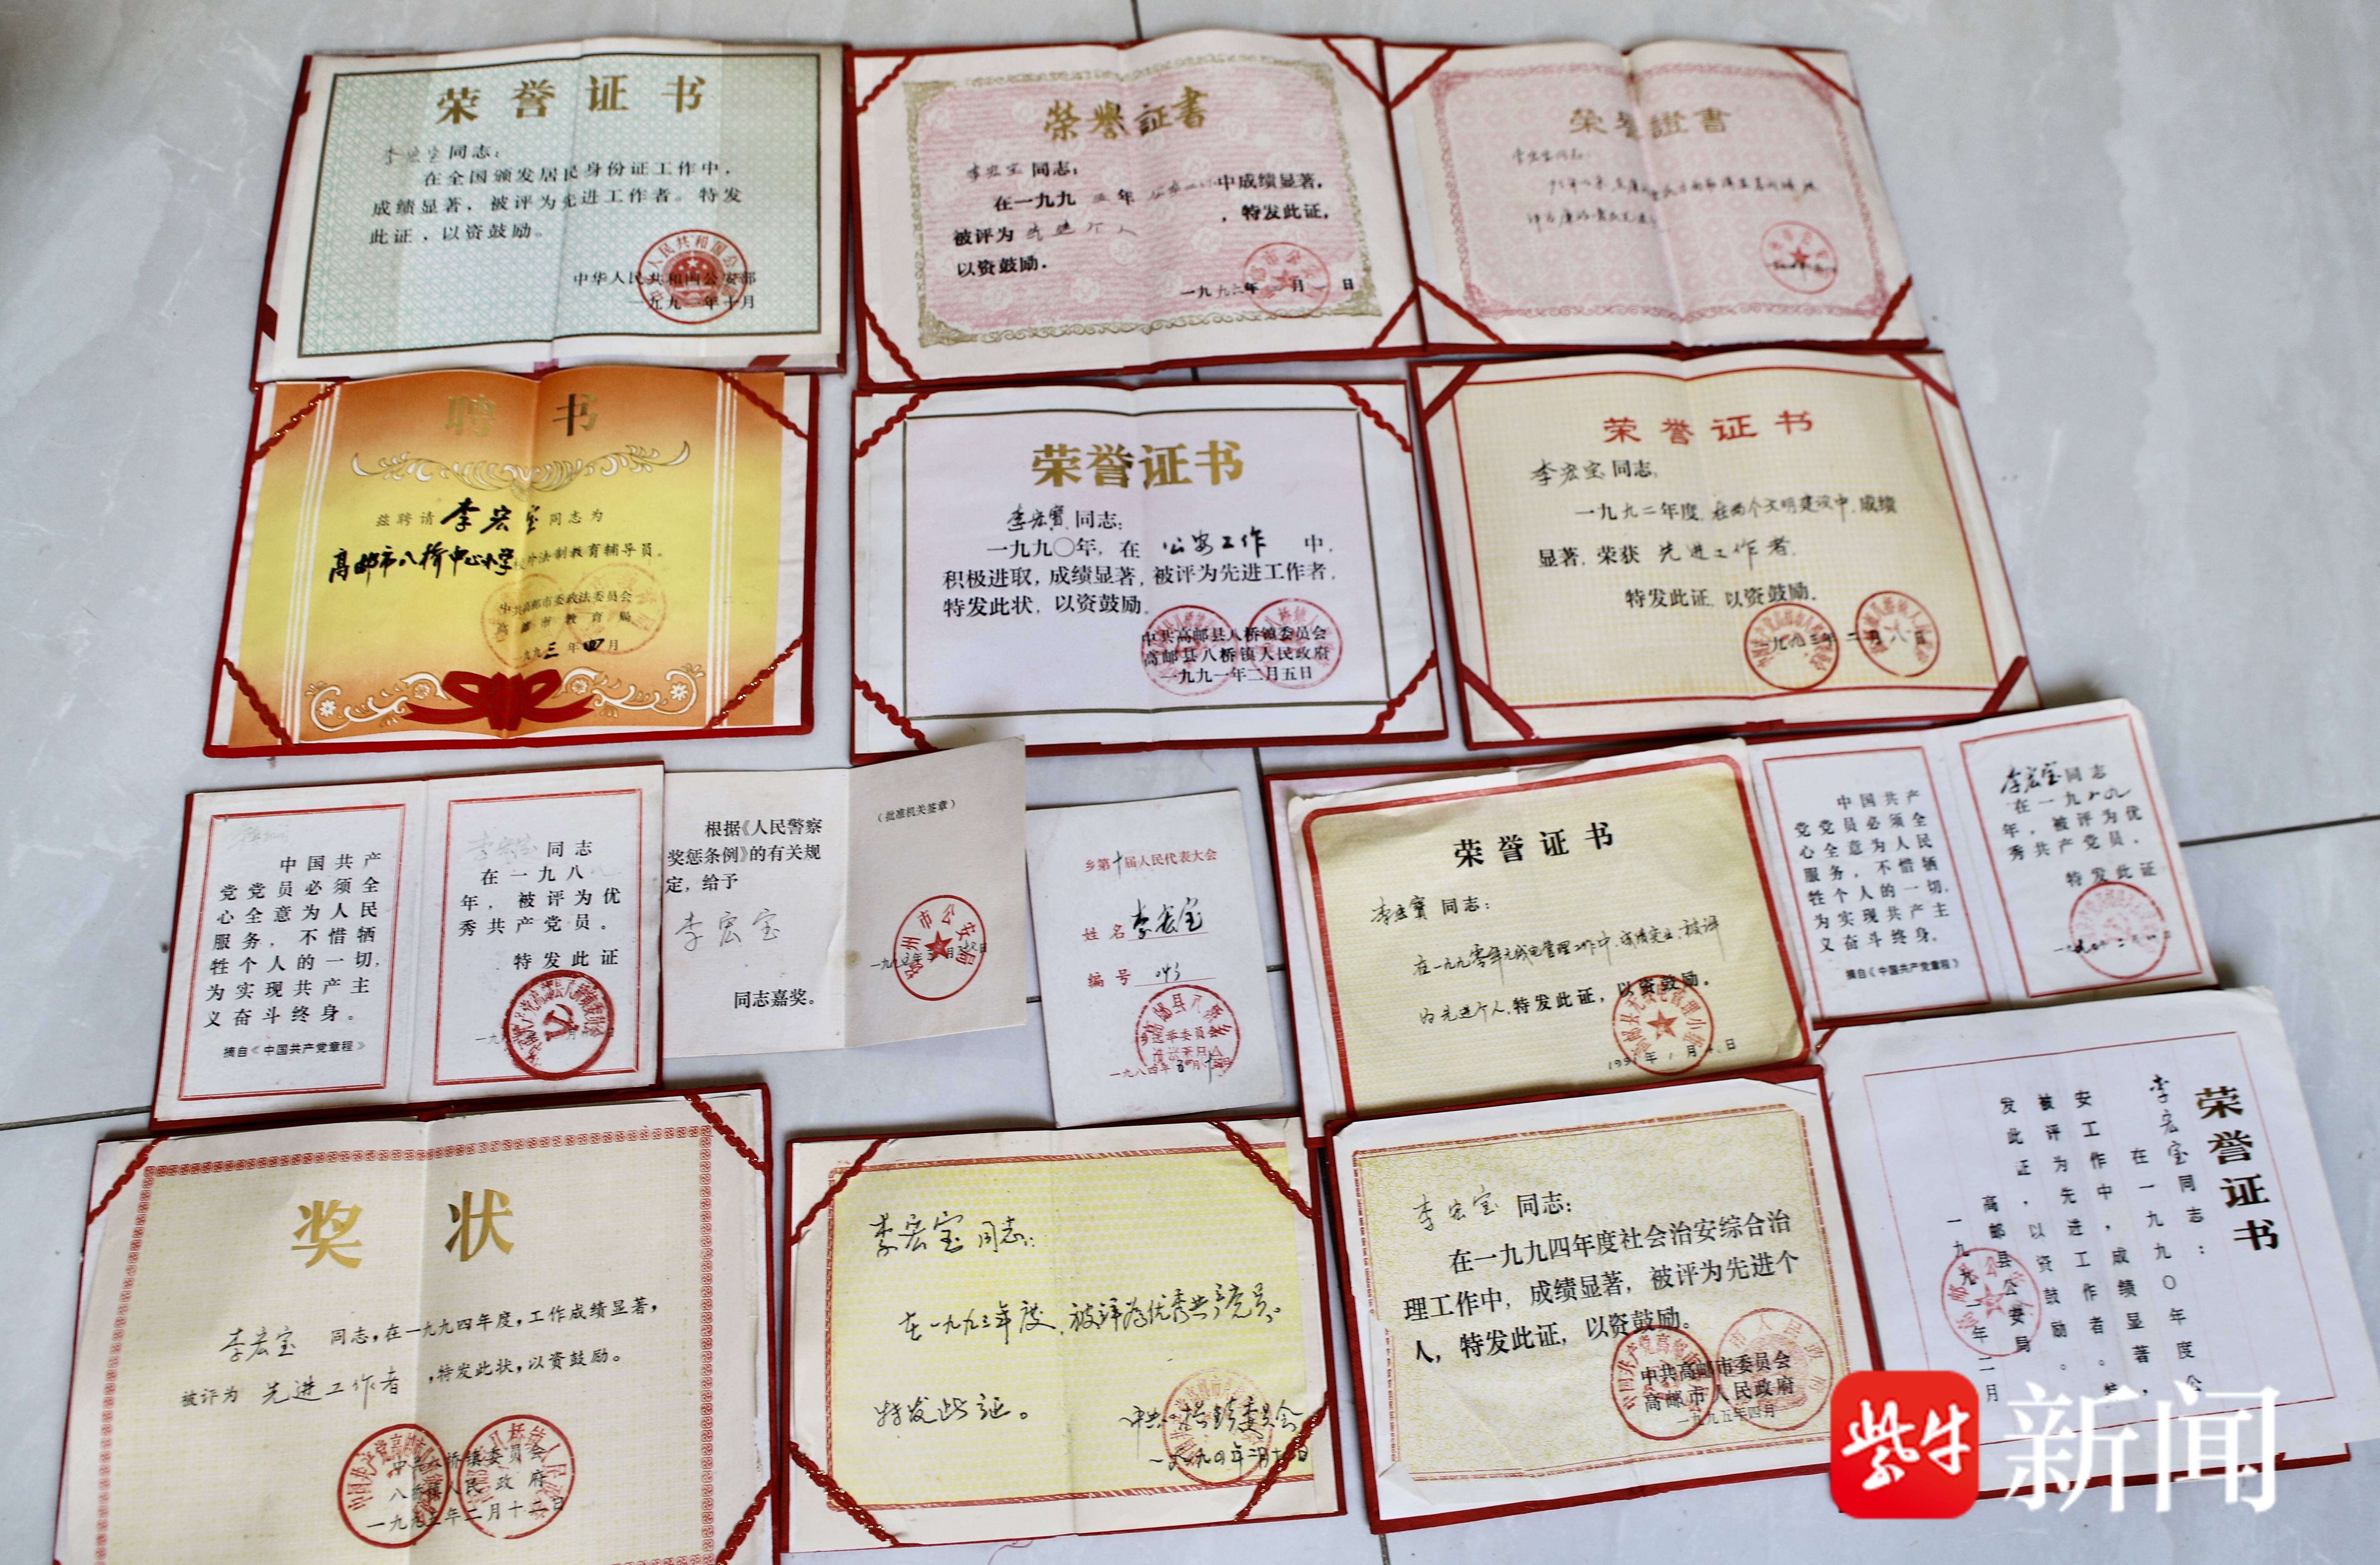 荣誉证书
同志:
在全国颁发居民身份证工作中,
成绩显著,被评为先进工作者。特发
此证,以资鼓励。
中华人民共和国公安部
一九九 年十月
荣誉証書
李宏宝 同志:
在一九九 年 中成绩显著,
被评为 先进个人 ,特发此证,
以资鼓励.
一九九 年 月 日
荣誉證書
聘书
兹聘请 李宏宝 同志为
高邮市八桥中心小学校外法制教育辅导员。
中共高邮市委政法委员会
高邮市教育局
一九九三年四月
荣誉证书
李宏寶 同志:
一九九〇年,在 公安工作 中,
积极进取,成绩显著,被评为先进工作者,
特发此状,以资鼓励。
中共高邮县八桥镇委员会
高邮县八桥镇人民政府
一九九一年二月五日
荣誉证书
李宏宝 同志,
一九九二年度,在两个文明建设中,成绩
显著,荣获 先进工作者,
特发此证,以资鼓励。
一九九三年二月八日
中国共产
党党员必须全
心全意为人民
服务,不惜牺
牲个人的一切,
为实现共产主
义奋斗终身。
摘自《中国共产党章程》
李宏宝同志
在一九八
年,被评为优
秀共产党员。
特发此证
根据《人民警察
奖惩条例》的有关规
定,给予
李宏宝
同志嘉奖。
(批准机关签章)
扬州市公安局
乡第十届人民代表大会
姓名 李宏宝
编号 043
一九八四年
荣誉证书
李宏寶 同志:
在一九九零年无线电管理工作中,成绩突出,被评
为先进个人,特发此证,以资鼓励。
1991年1月 日
中国共产
党党员必须全
心全意为人民
服务,不惜牺
牲个人的一切,
为实现共产主
义奋斗终身。
摘自《中国共产党章程》
李宏宝同志
在一九八九
年,被评为优
秀共产党员。
特发此证
奖状
李宏宝 同志,在一九九四年度,工作成绩显著,
被评为 先进工作者 ,特发此状,以资鼓励。
中共八桥镇委员会
八桥镇人民政府
一九九五年二月十二日
李宏宝同志:
在一九九三年度,被评为优秀共产党员。
特发此证。
中共八桥镇委员会
一九九四年二月 日
李宏宝 同志:
在一九九四年度社会治安综合治
理工作中,成绩显著,被评为先进个
人,特发此证,以资鼓励。
中共高邮市委员会
高邮市人民政府
一九九五年四月
荣誉证书
李宏宝同志:
在一九九〇年度公
安工作中,成绩显著,
被评为先进工作者。特
发此证,以资鼓励。
高邮县公安局
一九九一年二月
紫牛
新闻